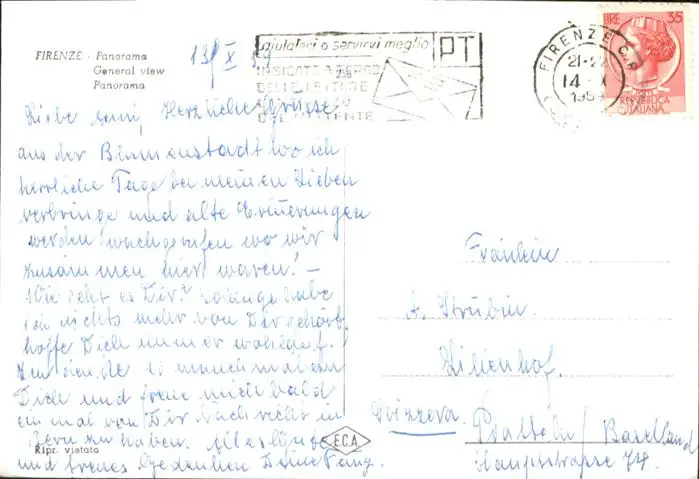 FIRENZE - Panorama
General view
Panorama
13/X 59
aiutateci a servirvi meglio
PT
INDICATE A TERGO
DELLE LETTERE
FIRENZE C.P.
21-22
14 - X
1959
LIRE 35
REPVBBLICA
ITALIANA
Liebe Herzliche Grüsse
aus der Blumenstadt wo ich
herrliche Tage bei meinen Lieben
verbringe und alte Erinnerungen
werden wachgerufen wo wir
zusammen hier waren! -
Wie geht es Dir? Solange habe
ich nichts mehr von Dir gehört
hoffe Dich immer wohlauf.
manchmal an
Dich und freue mich bald
einmal von Dir Nachricht in
Bern zu haben. Alles Liebe
und treues Gedenken Deine Fany.
Fräulein
A. Strübin
Lilienhof.
Pratteln / Baselland
Hauptstrasse 74.
Svizzera
E.C.A.
Ripr. vietata